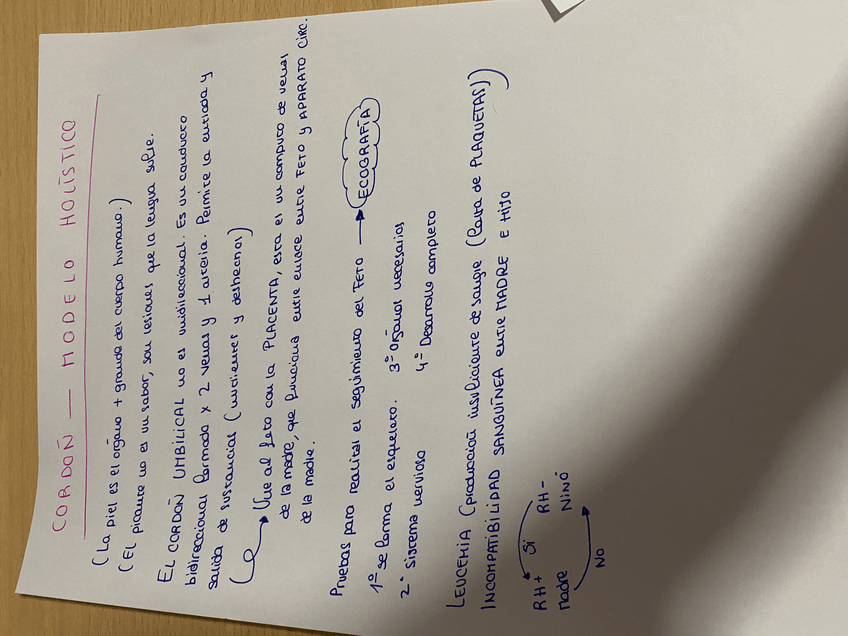 CORDÓN — MODELO HOLÍSTICO
(La piel es el órgano + grande del cuerpo humano.)
(El picante no es un sabor, son lesiones que la lengua sufre.
EL CORDÓN UMBILICAL no es unidireccional. Es un conducto
bidireccional formado x 2 venas y 1 arteria. Permite la entrada y
salida de sustancias (nutrientes y deshechos)
Une al feto con la PLACENTA, esta es un conjunto de venas
de la madre, que funciona entre enlace entre FETO y APARATO CIRC.
de la madre.
Pruebas para realizar el seguimiento del FETO → ECOGRAFÍA
1º se forma el esqueleto. 3º Órganos necesarios
2º Sistema nervioso 4º Desarrollo completo
LEUCEMIA (producación insuficiente de sangre (Rama de PLAQUETAS))
INCOMPATIBILIDAD SANGUÍNEA entre MADRE E HIJO
RH+ Si RH-
Madre Niño
No